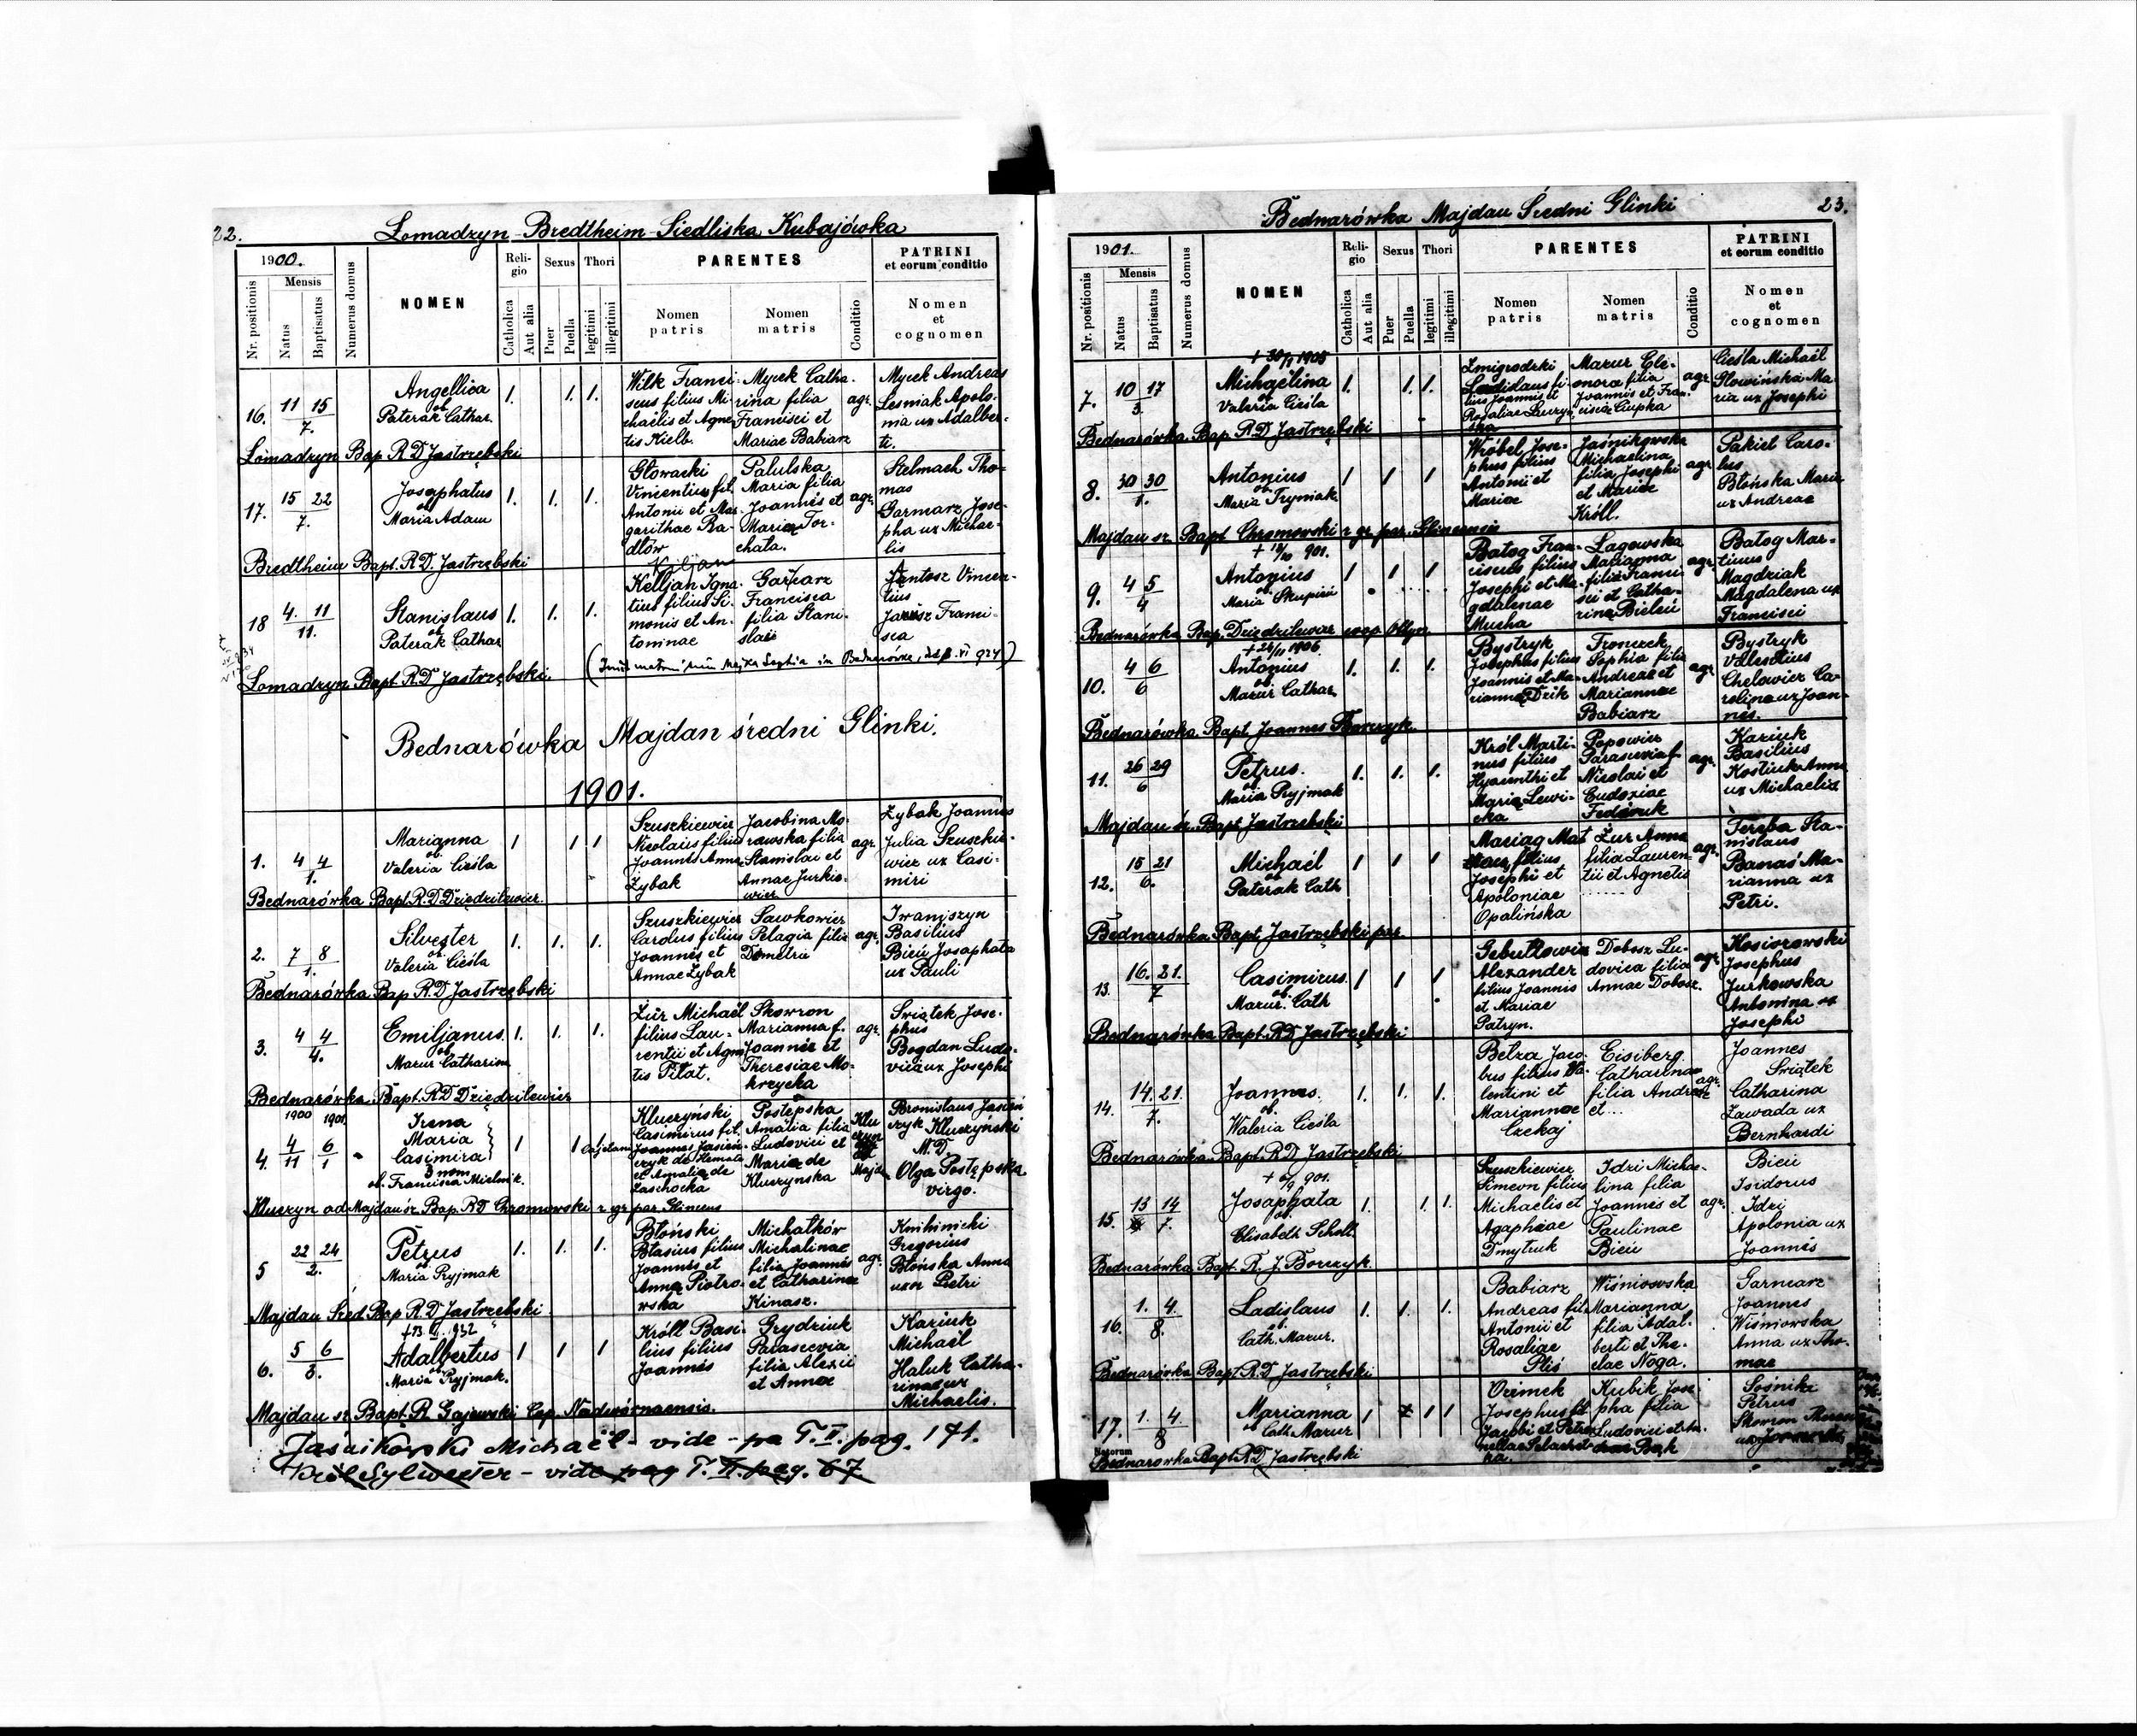 22.
Łomadzyn - Bredtheim - Siedliska Kubajówka
1900.
Nr. positionis
Mensis
Natus
Baptisatus
Numerus domus
NOMEN
Reli-
gio
Catholica
Aut alia
Sexus
Puer
Puella
Thori
legitimi
illegitimi
PARENTES
Nomen
patris
Nomen
matris
Conditio
PATRINI
et eorum conditio
Nomen
et
cognomen
16.
11 15
7.
Angellica
ob.
Paterak Cathar.
1. 1. 1.
Wilk Franci-
scus filius Mi-
chaëlis et Agne-
tis Kielb.
Mycek Catha-
rina filia
Francisci et
Mariae Babiarz
agr.
Mycek Andreas
Lesniak Apolo-
nia ux Adalber-
ti.
Łomadzyn Bap. R.D. Jastrzębski
17.
15 22
7.
Josaphatus
ob
Maria Adam
1. 1. 1.
Głowacki
Vincentius fil.
Antonii et Mar-
garithae Ra-
dłów
Palulska
Maria filia
Joannis et
Mariae Tor-
chała.
agr.
Stelmach Tho-
mas
Garmarz Jose-
pha ux Michae-
lis
Bredtheim Bapt. R.D. Jastrzębski
18
4. 11
11.
Stanislaus
ob
Paterak Cathar
1. 1. 1.
Kiljan
Kelljan Igna-
tius filius Si-
monis et An-
toninae
Garkarz
Francisca
filia Stani-
slai
Jantosz Vincen-
tius
Janusz Franci-
sca
Łomadzyn Bapt. R.D. Jastrzębski.
Bednarówka Majdan średni Glinki.
1901.
1.
4 4
1.
Marianna
ob.
Valeria Cieśla
1 1 1
Szuszkiewicz
Nicolaus filius
Joannis Anna
Żybak
Jacobina Mo-
rawska filia
Stanislai et
Annae Jurkie-
wicz
agr.
Żybak Joannes
Julia Szuszkie-
wicz ux Casi-
miri
Bednarówka Bapt. R.D. Dziędzilewicz.
2.
7 8
1.
Silvester
ob.
Valeria Cieśla
1. 1. 1.
Szuszkiewicz
Carolus filius
Joannis et
Annae Żybak
Sawkowicz
Pelagia filia
Demetrii
agr.
Iwaniszyn
Basilius
Bicių Josaphata
ux Pauli
Bednarówka Bap. R.D. Jastrzębski
3.
4 4
4.
Emiljanus.
ob
Mazur Catharina
1. 1. 1.
Żur Michaël
filius Lau-
rentii et Agne-
tis Pilat.
Skowron
Marianna f.
Joannis et
Theresiae Mo-
krzycka
agr.
Świątek Jose-
phus
Bogdan Ludo-
vica ux Josephi
Bednarówka Bapt. R.D. Dziędzilewicz
4.
1900 1901.
4 6
11 1
Irena
Maria
Casimira
3 nom
ob. Francisca Mielnik.
1 1
Kluczyński
Casimirus fil.
Postępska
Amalia filia
Ludovici et
Mariae de
Kluczynska
Bronislaus Jasień-
czyk Kluczyński
M.D.
Olga Postępska
virgo.
Kluczyn ad Majdan śr. Bap. R.D. Chromowski r. gr. par. Glincens
5
22 24
2.
Petrus
ob.
Maria Pryjmak
1. 1. 1.
Błoński
Blasius filius
Joannis et
Anna Piotro-
wska
Michałków
Michalinae
filia Joannis
et Catharinae
Kinasz.
agr.
Knihinicki
Gregorius
Błońska Anna
uxor Pietri
Majdan Śred. Bap. R.D. Jastrzębski
6.
5 6
3.
Adalbertus
ob
Maria Pryjmak.
1 1 1
Króll Basi-
lius filius
Joannis
Grydziuk
Parascevia
filia Alexii
et Annae
Kaziuk
Michaël
Haluk Catha-
rina ux
Michaelis.
Majdan śr. Bapt. R. Gajewski Cop. Nadwórnaensis.
Jaśnikowski Michaël - vide - pa T. II. pag. 171.
Król Sylwester - vide pag T. II. pag. 67
23.
Bednarówka Majdan Średni Glinki
1901.
Nr. positionis
Mensis
Natus
Baptisatus
Numerus domus
NOMEN
Reli-
gio
Catholica
Aut alia
Sexus
Puer
Puella
Thori
legitimi
illegitimi
PARENTES
Nomen
patris
Nomen
matris
Conditio
PATRINI
et eorum conditio
Nomen
et
cognomen
7.
10 17
3.
Michaëlina
ob
Valeria Cieśla
1. 1. 1.
Żmigrodzki
Ladislaus fi-
lius Joannis et
Rosaliae
Mazur Ele-
onora filia
Joannis et Fran-
cisca Ciupka
agr.
Cieśla Michaël
Głowińska Ma-
ria ux Josephi
Bednarówka Bap. R.D. Jastrzębski
8.
30 30
1.
Antonius
ob
Maria Prymiak
1 1 1
Wróbel Jose-
phus filius
Antonii et
Mariae
Jaśnikowska
Michaelina
filia Josephi
et Mariae
Króll.
agr.
Pakiel Caro-
lus
Błońska Maria
ux Andreae
Majdan śr. Bapt. Chromowski r. gr. par. Glincensis
9.
4 5
4
Antonius
ob.
Maria Skupień
1 1 1
Batog Fran-
ciscus filius
Josephi et Ma-
gdalenae
Mucha
Lagowska
Marianna
filia Franci-
sci et Catha-
rinae Bieleń
agr.
Batog Mar-
tinus
Magdziak
Magdalena ux
Francisci
Bednarówka Bap. Dziędzilewicz
10.
4 6
6
Antonius
ob.
Mazur Cathar
1. 1. 1.
Bystryk
Josephus filius
Joannis et Ma-
riannae Dzik
Fronczek
Sophia filia
Andreae et
Mariannae
Babiarz
agr.
Bystryk
Valentius
Chelowicz Ca-
rolina ux Joan-
nis.
Bednarówka Bapt. Joannes Borczyk.
11.
26 29
6
Petrus.
ob
Maria Pryjmak
1. 1. 1.
Król Marti-
nus filius
Hyacinthi et
Mariae Lewi-
cka
Popowicz
Parascevia f.
Nicolai et
Eudoxiae
Fedoruk
agr.
Kaziuk
Basilius
Kostiuk Anna
ux Michaelis
Majdan śr. Bapt. Jastrzębski
12.
15 21
6.
Michaël
ob
Paterak Cath
1 1 1
Maciag Mat
filius
Josephi et
Apoloniae
Opalińska
Żur Anna
filia Lauren-
tii et Agnetis
agr.
Tereba Sta-
nislaus
Banaś Ma-
rianna ux
Petri.
Bednarówka Bapt. Jastrzębski par
13.
16. 21.
7
Casimirus.
ob.
Mazur. Cath
1 1 1
Gebułtowicz
Alexander
filius Joannis
et Mariae
Patryn.
Dobosz Lu-
dovica filia
Annae Dobosz.
agr.
Kosiorowski
Josephus
Jurkowska
Antonina ux
Josephi
Bednarówka Bapt. R.D. Jastrzębski
14.
14. 21.
7.
Joannes.
ob.
Waleria Cieśla
1. 1. 1.
Betza Jaco-
bus filius Va-
lentini et
Mariannae
Czekaj
Eisiberg
Catharina
filia Andreae
et...
agr.
Joannes
Świątek
Catharina
Zawada ux
Bernhardi
Bednarówka Bapt. R.D. Jastrzębski
15.
13 14
7.
Josaphata
ob.
Elisabeth Scholl.
1. 1 1.
Szuszkiewicz
Simeon filius
Michaelis et
Agaphiae
Dmytruk
Idzi Michae-
lina filia
Joannis et
Paulinae
Bicių
agr.
Bicių
Isidorus
Idzi
Apolonia ux
Joannis
Bednarówka Bapt. R. J. Borczyk.
16.
1. 4.
8.
Ladislaus
ob.
Cath. Mazur.
1. 1. 1.
Babiarz
Andreas fil.
Antonii et
Rosaliae
Pliś
Wiśniowska
Marianna
filia Adal-
berti et The-
clae Noga.
Garncarz
Joannes
Wiśniowska
Anna ux Tho-
mae
Bednarówka Bapt. R.D. Jastrzębski
17.
1. 4.
8
Marianna
ob Cath. Mazur
1 1 1
Ozimek
Josephus fil
Jacobi et Petro-
Kubik Jose-
pha filia
Ludovici et
Sośnika
Petrus
Skowron
Natorum
Bednarówka Bapt. R.D. Jastrzębski